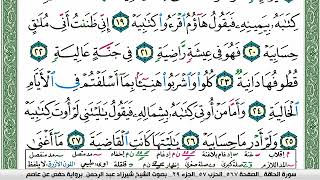 كِتَٰبَهُۥ بِيَمِينِهِۦ فَيَقُولُ هَآؤُمُ ٱقْرَءُوا۟ كِتَٰبِيَهْ ١٩ إِنِّى ظَنَنتُ أَنِّى مُلَٰقٍ
حِسَابِيَهْ ٢٠ فَهُوَ فِى عِيشَةٍ رَّاضِيَةٍ ٢١ فِى جَنَّةٍ عَالِيَةٍ ٢٢
قُطُوفُهَا دَانِيَةٌ ٢٣ كُلُوا۟ وَٱشْرَبُوا۟ هَنِيٓـًٔۢا بِمَآ أَسْلَفْتُمْ فِى ٱلْأَيَّامِ
ٱلْخَالِيَةِ ٢٤ وَأَمَّا مَنْ أُوتِىَ كِتَٰبَهُۥ بِشِمَالِهِۦ فَيَقُولُ يَٰلَيْتَنِى لَمْ أُوتَ كِتَٰبِيَهْ
٢٥ وَلَمْ أَدْرِ مَا حِسَابِيَهْ ٢٦ يَٰلَيْتَهَا كَانَتِ ٱلْقَاضِيَةَ ٢٧
سورة الحاقة . الصفحة ٥٦٧ . الحزب ٥٧ . الجزء ٢٩ . بصوت الشيخ شيرزاد عبد الرحمن . برواية حفص عن عاصم